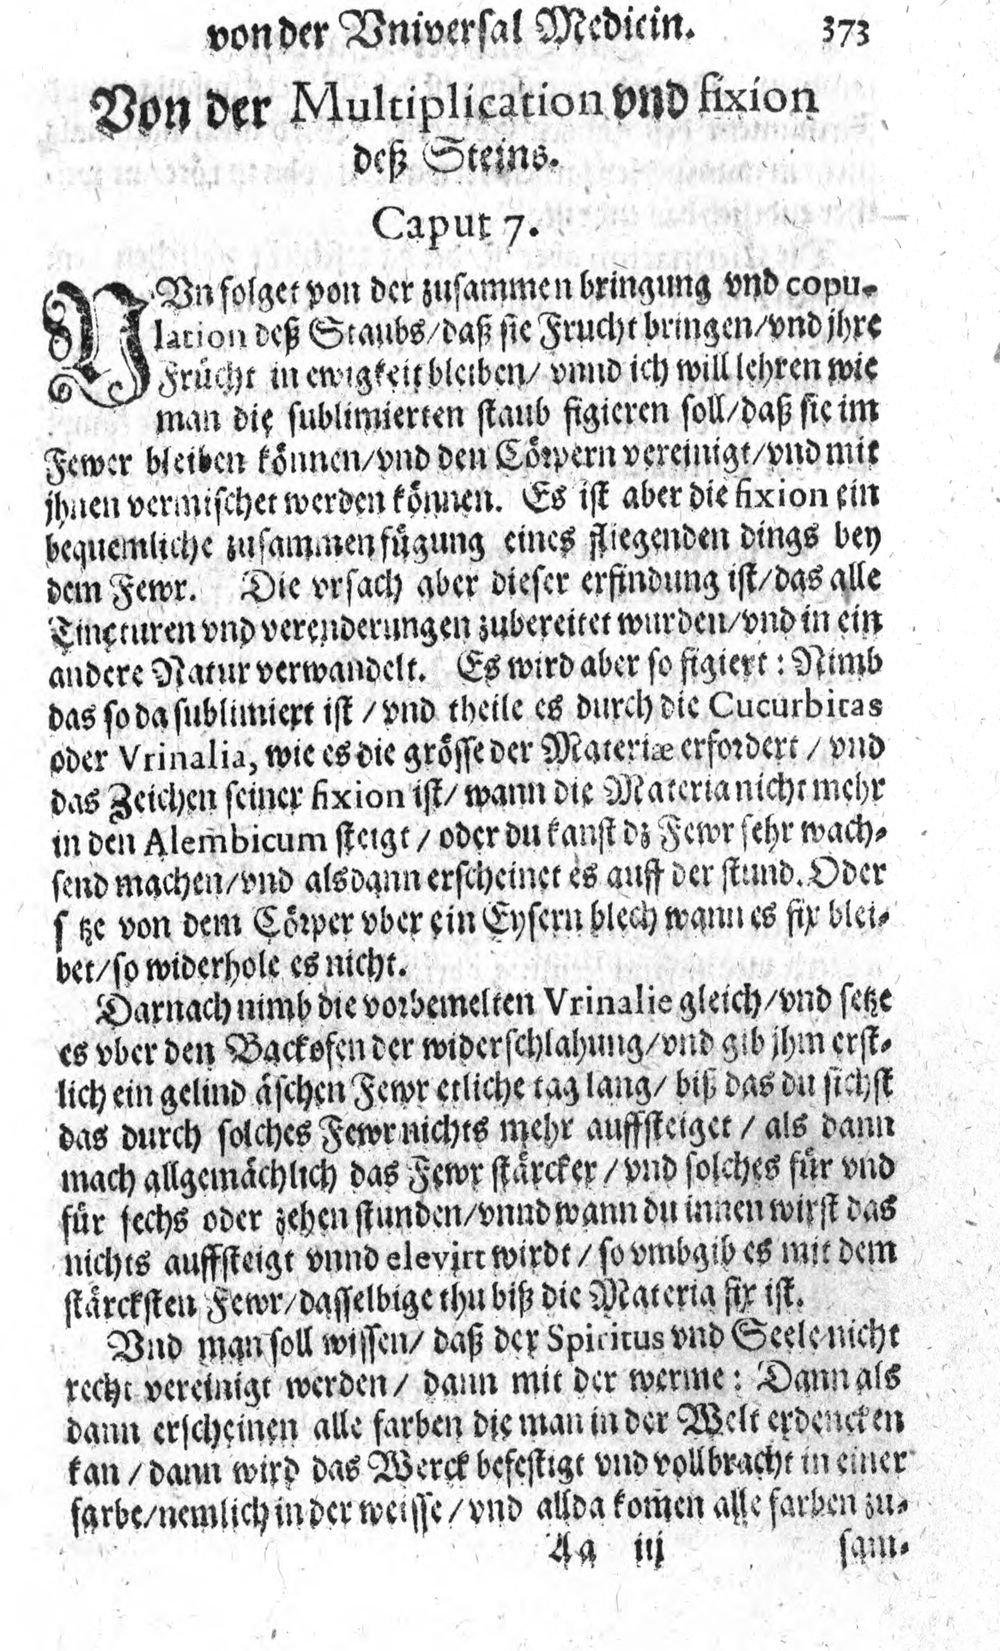 von der Vniversal Medicin. 373
Von der Multiplication vnd fixion
deß Steins.
Caput 7.
NVn folget von der zusammen bringung vnd copu-
lation deß Staubs/daß sie Frucht bringen/vnd jhre
Frücht in ewigkeit bleiben/ vnnd ich will lehren wie
man die sublimierten staub figieren soll/daß sie im
Fewer bleiben können/vnd den Cörpern vereinigt/vnd mit
jhnen vermischet werden können. Es ist aber die fixion ein
bequemliche zusammenfügung eines fliegenden dings bey
dem Fewr. Die vrsach aber dieser erfindung ist/das alle
Tincturen vnd verenderungen zubereitet wurden/vnd in ein
andere Natur verwandelt. Es wird aber so figiert: Nimb
das so da sublimiert ist / vnd theile es durch die Cucurbitas
oder Vrinalia, wie es die grösse der Materiæ erfordert / vnd
das Zeichen seiner fixion ist/ wann die Materia nicht mehr
in den Alembicum steigt / oder du kanst dz Fewr sehr wach-
send machen/vnd alsdann erscheinet es auff der stund. Oder
s tze von dem Cörper vber ein Eysern blech wann es fix blei-
bet/so widerhole es nicht.
Darnach nimb die vorbemelten Vrinalie gleich/vnd setze
es vber den Backofen der widerschlahung/vnd gib jhm erst-
lich ein gelind äschen Fewr etliche tag lang/ biß das du sichst
das durch solches Fewr nichts mehr auffsteiget / als dann
mach allgemächlich das Fewr stärcker / vnd solches für vnd
für sechs oder zehen stunden/vnnd wann du innen wirst das
nichts auffsteigt vnnd elevirt wirdt / so vmbgib es mit dem
stärcksten Fewr/dasselbige thu biß die Materia fix ist.
Vnd man soll wissen/ daß der Spiritus vnd Seele nicht
recht vereinigt werden / dann mit der werme: Dann als
dann erscheinen alle farben die man in der Welt erdencken
kan / dann wird das Werck befestigt vnd vollbracht in einer
farbe/nemlich in der weisse / vnd allda kom̃en alle farben zu-
Aa iij sam-